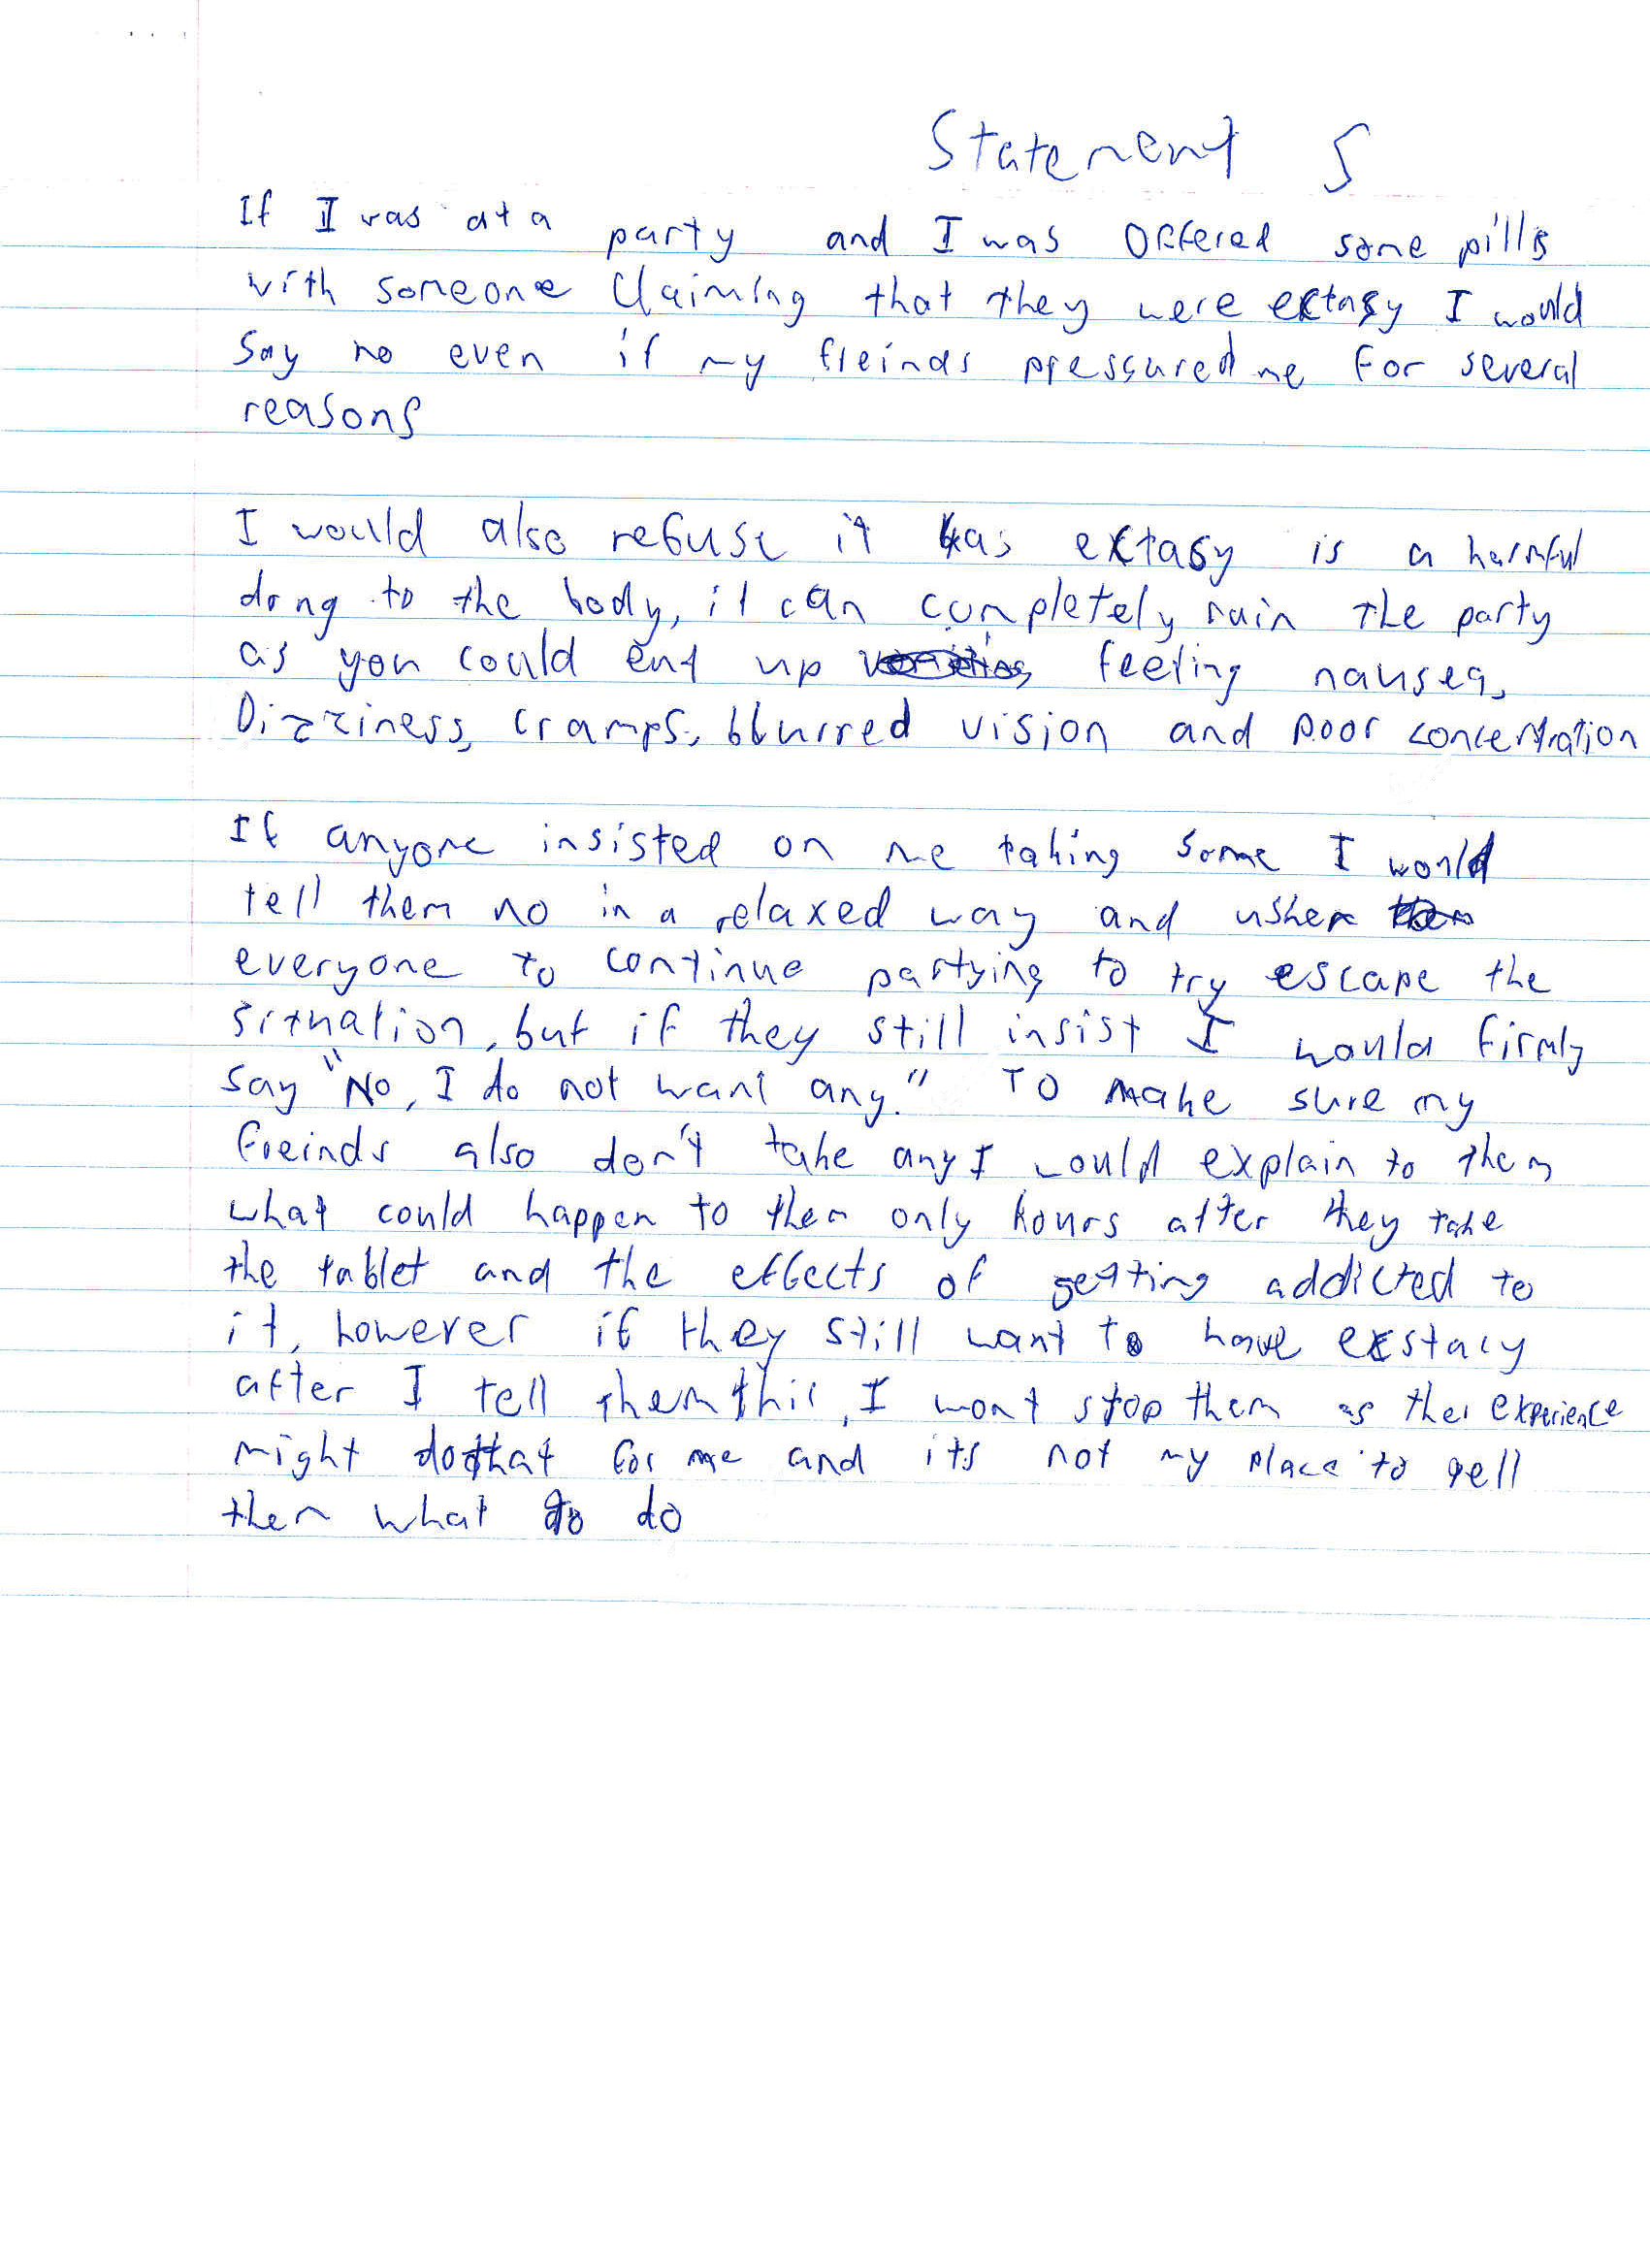 Statement 5
If I was at a party and I was offered some pills
with someone Claiming that they were extasy I would
Say no even if my freinds pressured me for several
reasons
I would also refuse it as extasy is a harmful
drug to the body, it can completely ruin the party
as you could end up feeling nausea,
Dizziness, cramps, blurred vision and poor concentration
If anyone insisted on me taking some I would
tell them no in a relaxed way and usher
everyone to continue partying to try escape the
situation, but if they still insist I would firmly
say "No, I do not want any." To make sure my
freinds also don't take any I would explain to them
what could happen to them only hours after they take
the tablet and the effects of getting addicted to
it, however if they still want to have exstacy
after I tell them this, I wont stop them as the experience
might do that for me and its not my place to tell
them what to do